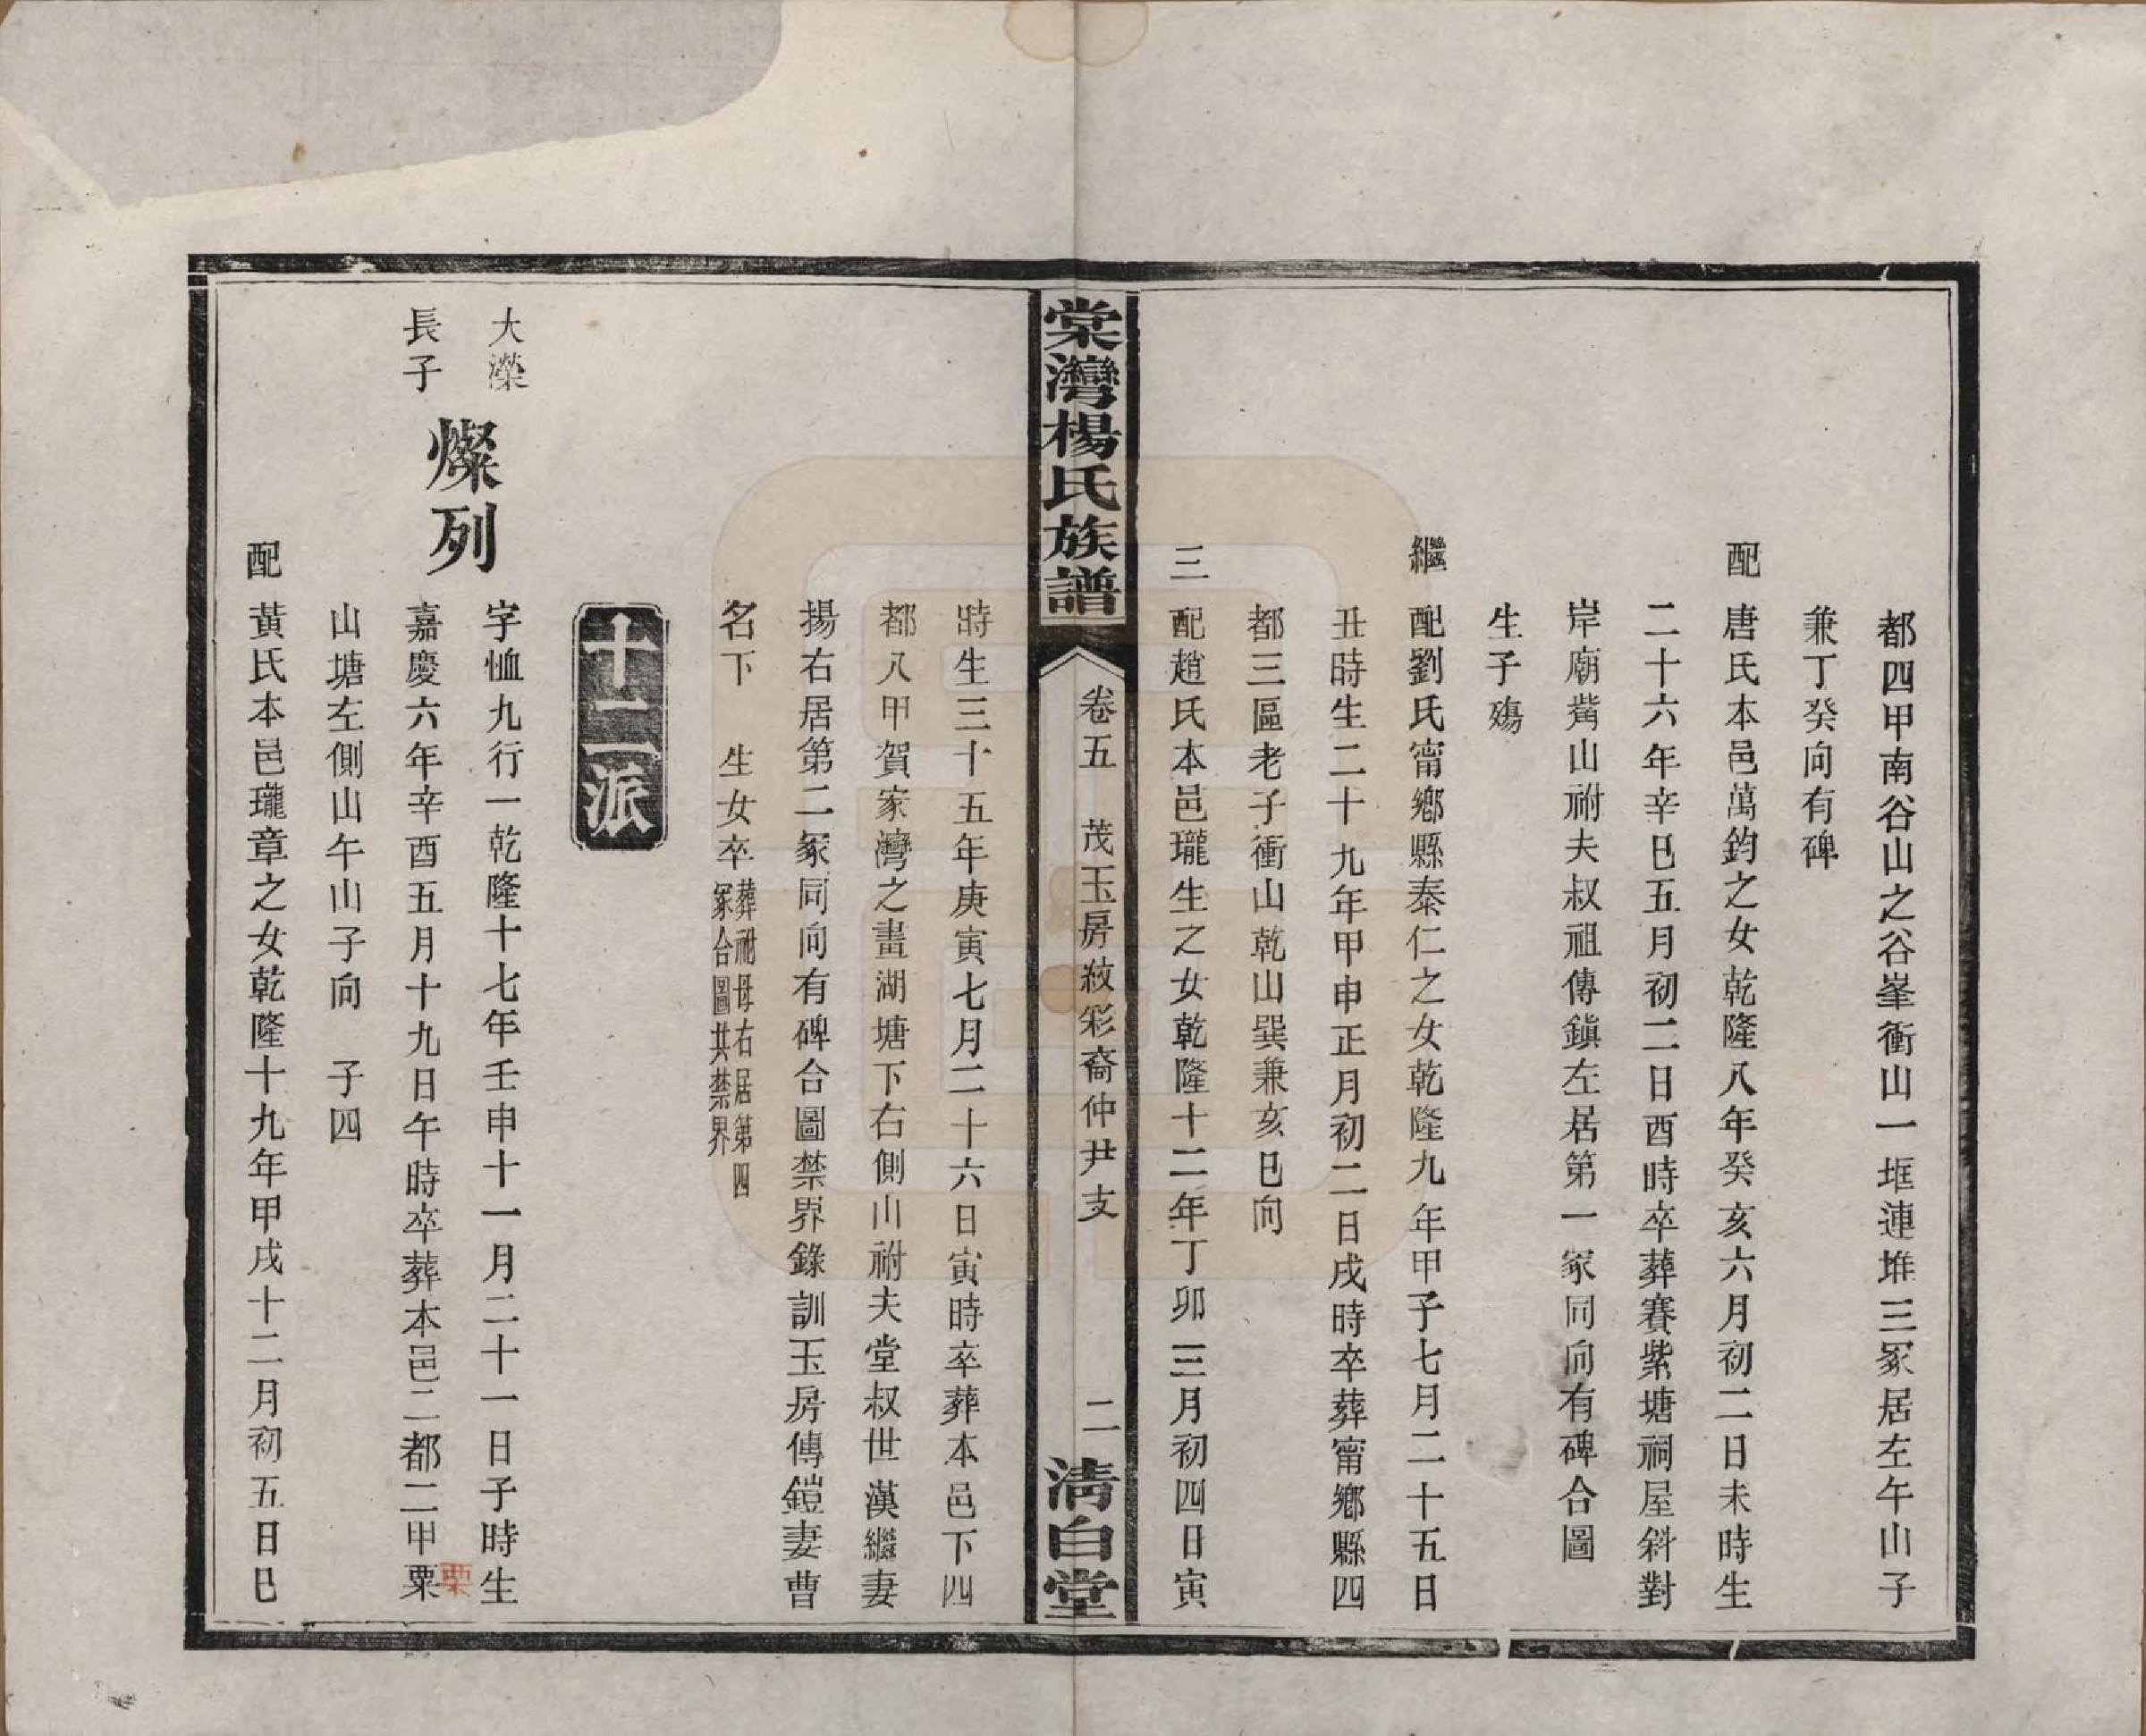 都四甲南谷山之谷峯衝山一堆連堆三冢居左午山子
兼丁癸向有碑
配唐氏本邑萬鈞之女乾隆八年癸亥六月初二日未時生
二十六年辛巳五月初二日酉時卒葬賽紫塘祠屋斜對
岸廟觜山祔夫叔祖傳鎮左居第一冢同向有碑合圖
生子殤
繼配劉氏甯鄉縣泰仁之女乾隆九年甲子七月二十五日
丑時生二十九年甲申正月初二日戌時卒葬甯鄉縣四
都三區老子衝山乾山巽兼亥巳向
三配趙氏本邑瓏生之女乾隆十二年丁卯三月初四日寅
棠灣楊氏族譜 卷五 茂玉房紋彩裔仲尹支 二 清白堂
時生三十五年庚寅七月二十六日寅時卒葬本邑下四
都八甲賀家灣之畫湖塘下右側山祔夫堂叔世漢繼妻
揚右居第二冢同向有碑合圖禁界錄訓玉房傳鎧妻曹
名下 生女卒葬祔母右居第四
冢合圖共禁界
十二派
大濚
長子
燦列
字恤九行一乾隆十七年壬申十一月二十一日子時生
嘉慶六年辛酉五月十九日午時卒葬本邑二都二甲粟
栗
山塘左側山午山子向 子四
配黃氏本邑瓏章之女乾隆十九年甲戌十二月初五日巳